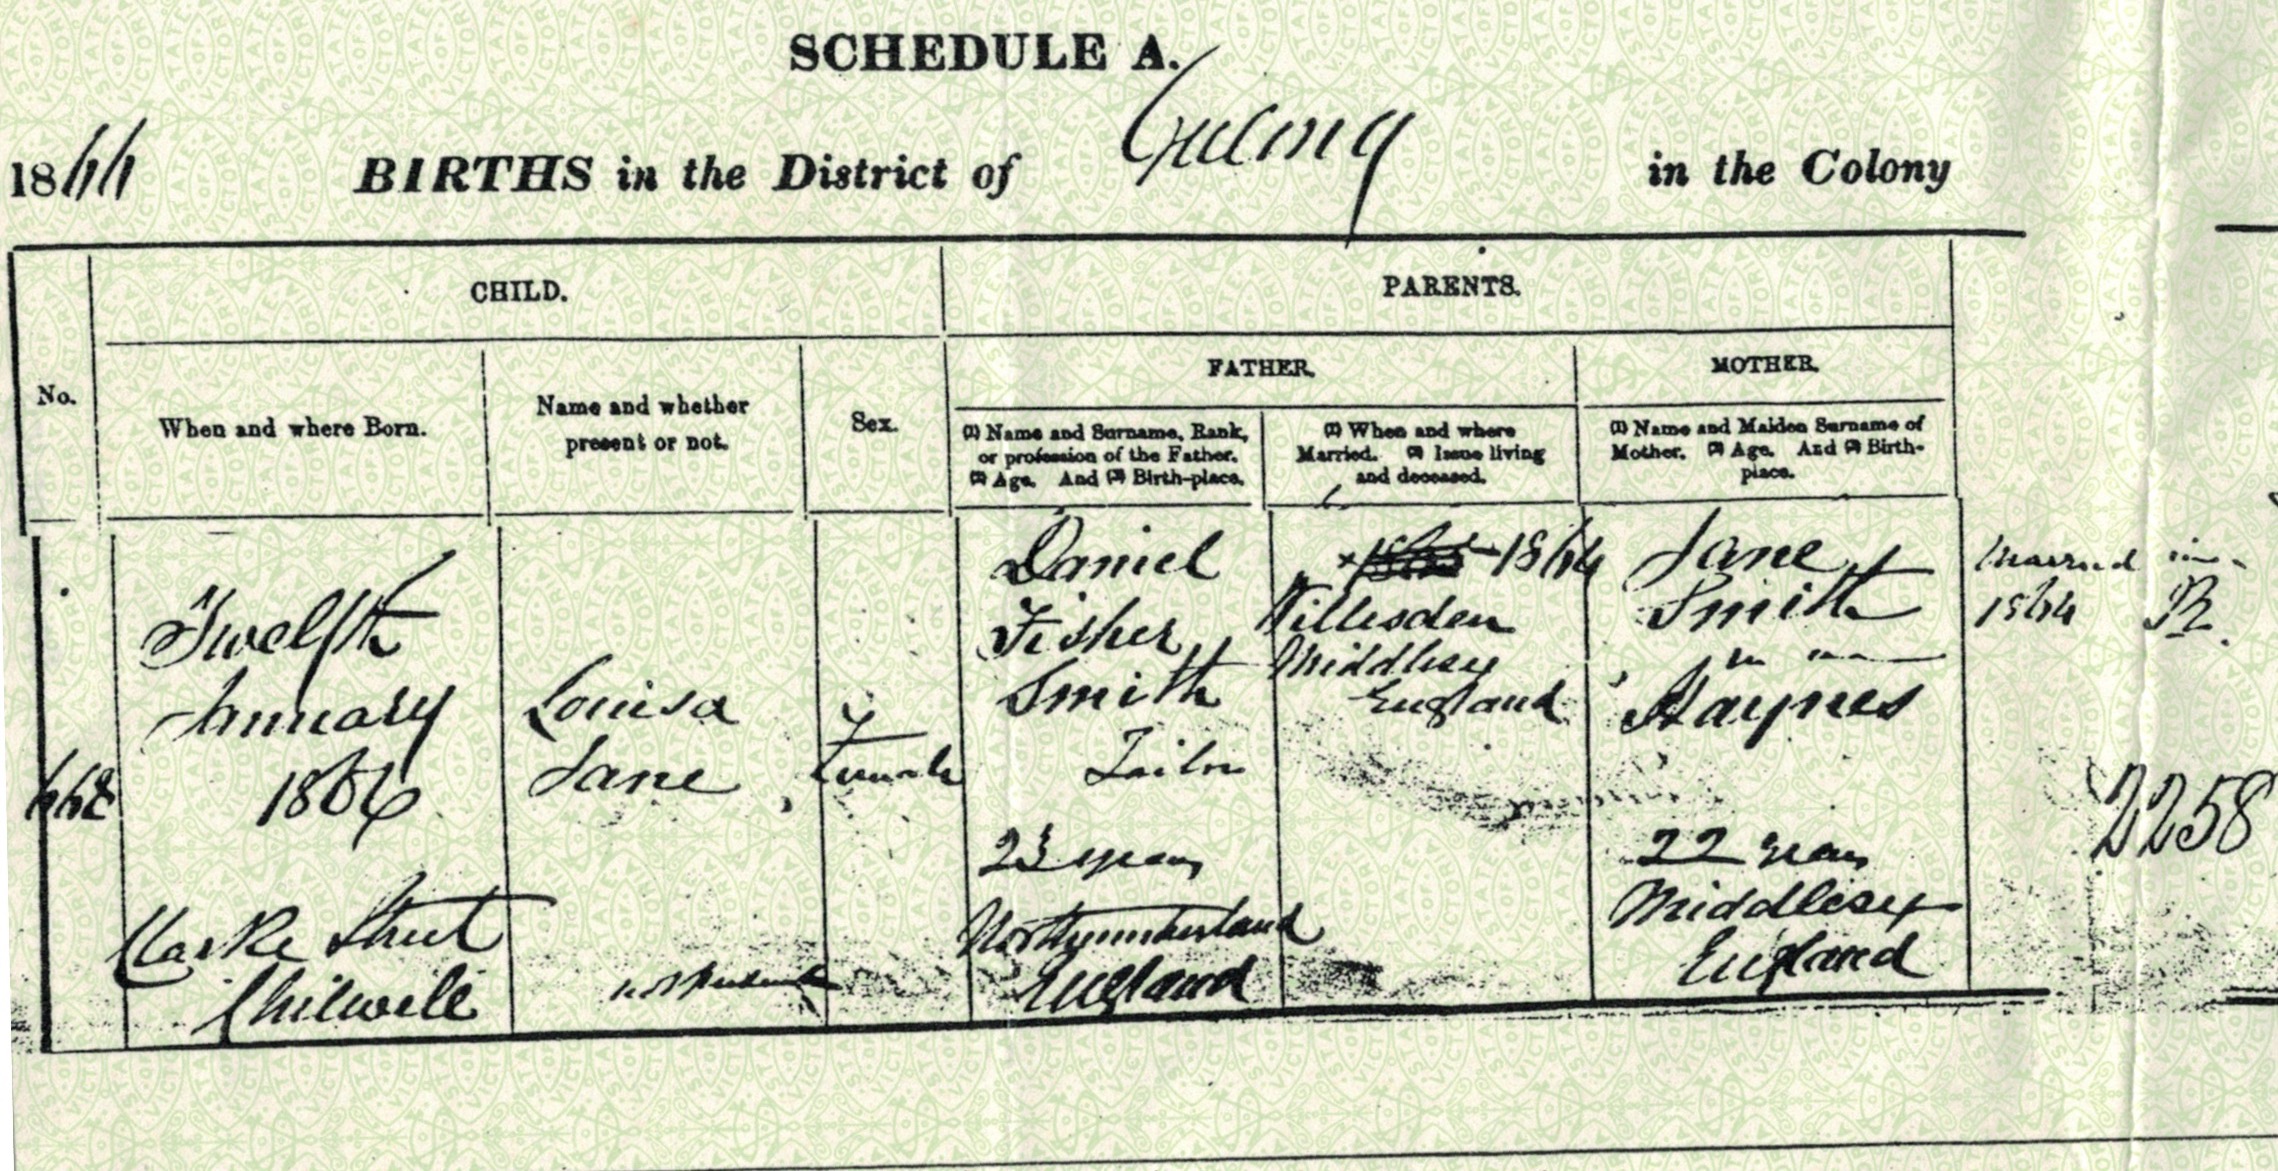 SCHEDULE A.
1866 BIRTHS in the District of Geelong in the Colony
CHILD.
PARENTS.
FATHER.
MOTHER.
No.
When and where Born.
Name and whether
present or not.
Sex.
(1) Name and Surname, Rank,
or profession of the Father.
(2) Age. And (3) Birth-place.
(1) When and where
Married. (2) Issue living
and deceased.
(1) Name and Maiden Surname of
Mother. (2) Age. And (3) Birth-
place.
668
Twelfth
January
1866
Clarke Street
Chilwell
Louisa
Jane
not present
Female
Daniel
Fisher
Smith
Tailor
23 years
Northumberland
England
1865 1864
Willesden
Middlesex
England
Jane
Smith
Haynes
22 years
Middlesex
England
Married in
1864
2258